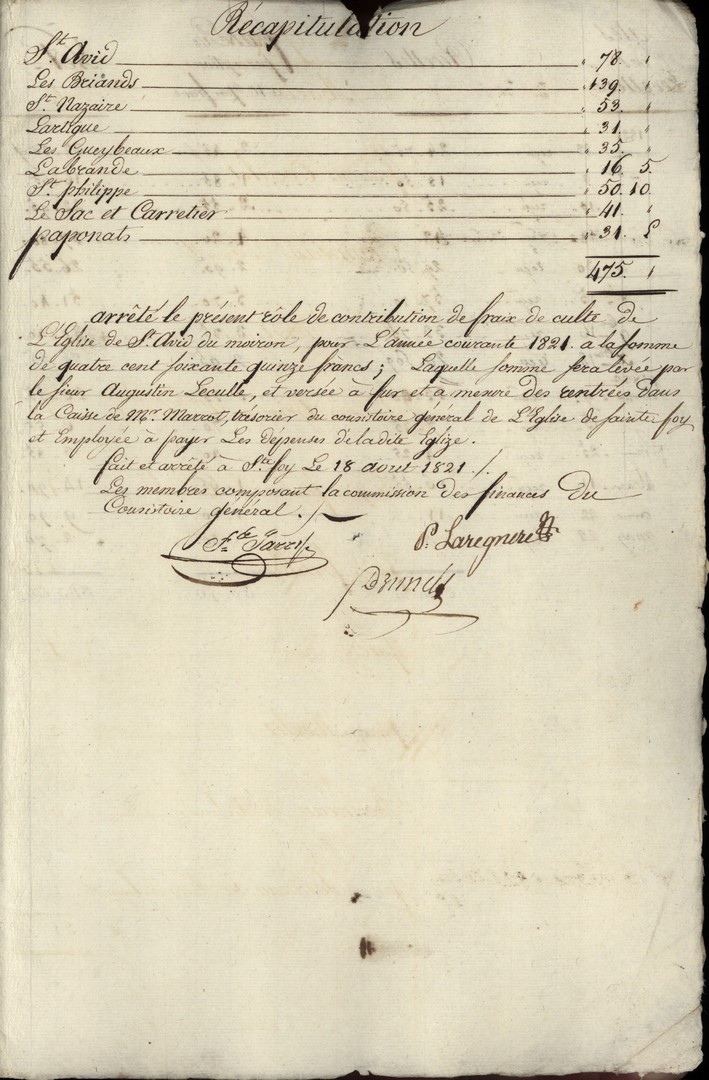 Récapitulation
St. Avid 78. "
Les Briands 139. "
St. Nazaire 53. "
Lartigue 31. "
Les Gueybeaux 35. "
Labrande 16. 5.
St. philippe 50. 10.
Le Sac et Carretier 41. "
paponats 31.
475. "
arrêté le présent rôle de contribution de fraix de culte de
L'Eglise de St. Avid du moiron, pour L'année courante 1821. à la somme
de quatre cent soixante quinze francs; Laquelle somme sera levée par
le sieur Augustin Leculle, et versée à fur et à mesure des rentrées dans
la Caisse de Mr. Marrot, trésorier du consistoire général de L'Eglise de sainte foy
et Employée à payer Les dépenses de ladite Eglize.
fait et arrêté à Ste. foy Le 18 aout 1821 ./.
Les membres composant la commission des finances Du
Consistoire général ./.
P. Laregnere